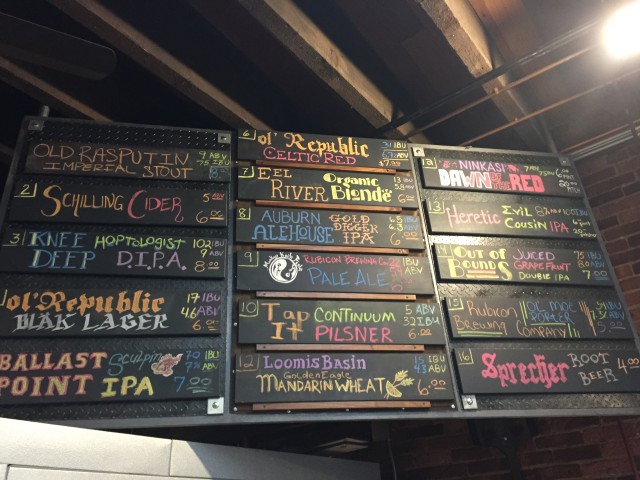 OLD RASPUTIN 9 ABV
IMPERIAL STOUT 75 IBU
2 SCHILLING CIDER 5 ABV
6.00
3 KNEE HOPTOLOGIST 102 IBU
DEEP D.I.P.A. 9 ABV
8.00
ol' Republic 17 IBU
BLÄK LAGER 4.6 ABV
6.00
BALLAST Sculpin 70 IBU
POINT IPA 7 ABV
7.00
6 ol' Republic IBU
CELTIC RED ABV
$7.00
7 EEL Organic
RIVER Blonde ABV
6.00
8 AUBURN GOLD
ALEHOUSE DIGGER
IPA 6.00
9 RUBICON BREWING Co. IBU
PALE ALE ABV
10 Tap CONTINUUM 5 ABV
It PILSNER 32 IBU
6.00
12 LOOMIS BASIN IBU
Golden Eagle ABV
MANDARIN WHEAT 6.00
NINKASI
DAWN OF THE RED
13 Heretic EVIL
COUSIN IPA
OUT OF JUICED IBU
BOUNDS GRAPEFRUIT 8.0 ABV
DOUBLE IPA 7.00
15 Rubicon
BREWING PORTER
COMPANY
16 Sprecher ROOT
BEER 4.00